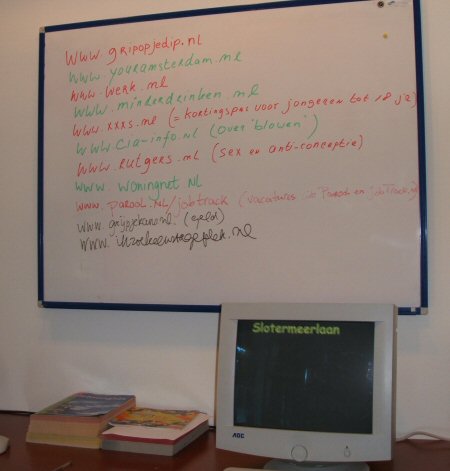 www.gripopjedip.nl
www.youramsterdam.nl
www.werk.nl
www.minderdrinken.nl
www.xxxs.nl (= kortingspas voor jongeren tot 18 jr)
www.cia-info.nl (over "blowen")
www.rutgers.nl (sex en anti-conceptie)
www.woningnet.nl
www.parool.nl/jobtrack (vacatures in Parool en jobtrack)
www.grijpjekans.nl
Slotermeerlaan
AOC